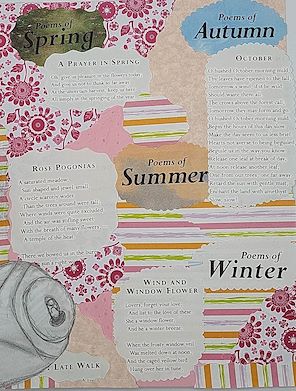 Poems of
Spring
A PRAYER IN SPRING
Oh, give us pleasure in the flowers today;
And give us not to think so far away
As the uncertain harvest; keep us here
All simply in the springing of the year.
Poems of
Autumn
OCTOBER
O hushed October morning mild,
Thy leaves have ripened to the fall;
Tomorrow's wind, if it be wild,
Should waste them all.
The crows above the forest call;
Tomorrow they may form and go.
O hushed October morning mild,
Begin the hours of this day slow.
Make the day seem to us less brief.
Hearts not averse to being beguiled,
Beguile us in the way you
Release one leaf at break of day;
At noon release another leaf;
One from our trees, one far away.
Retard the sun with gentle mist;
Enchant the land with amethyst.
slow
ROSE POGONIAS
A saturated meadow,
Sun-shaped and jewel-small,
A circle scarcely wider
Than the trees around were tall;
Where winds were quite excluded,
And the air was stifling sweet
With the breath of many flowers,
A temple of the heat.
There we bowed us in the
Poems of
Summer
Poems of
Winter
WIND AND
WINDOW FLOWER
Lovers, forget your love,
And list to the love of these,
She a window flower,
And he a winter breeze.
When the frosty window veil
Was melted down at noon,
And the caged yellow bird
Hung over her in tune,
LATE WALK